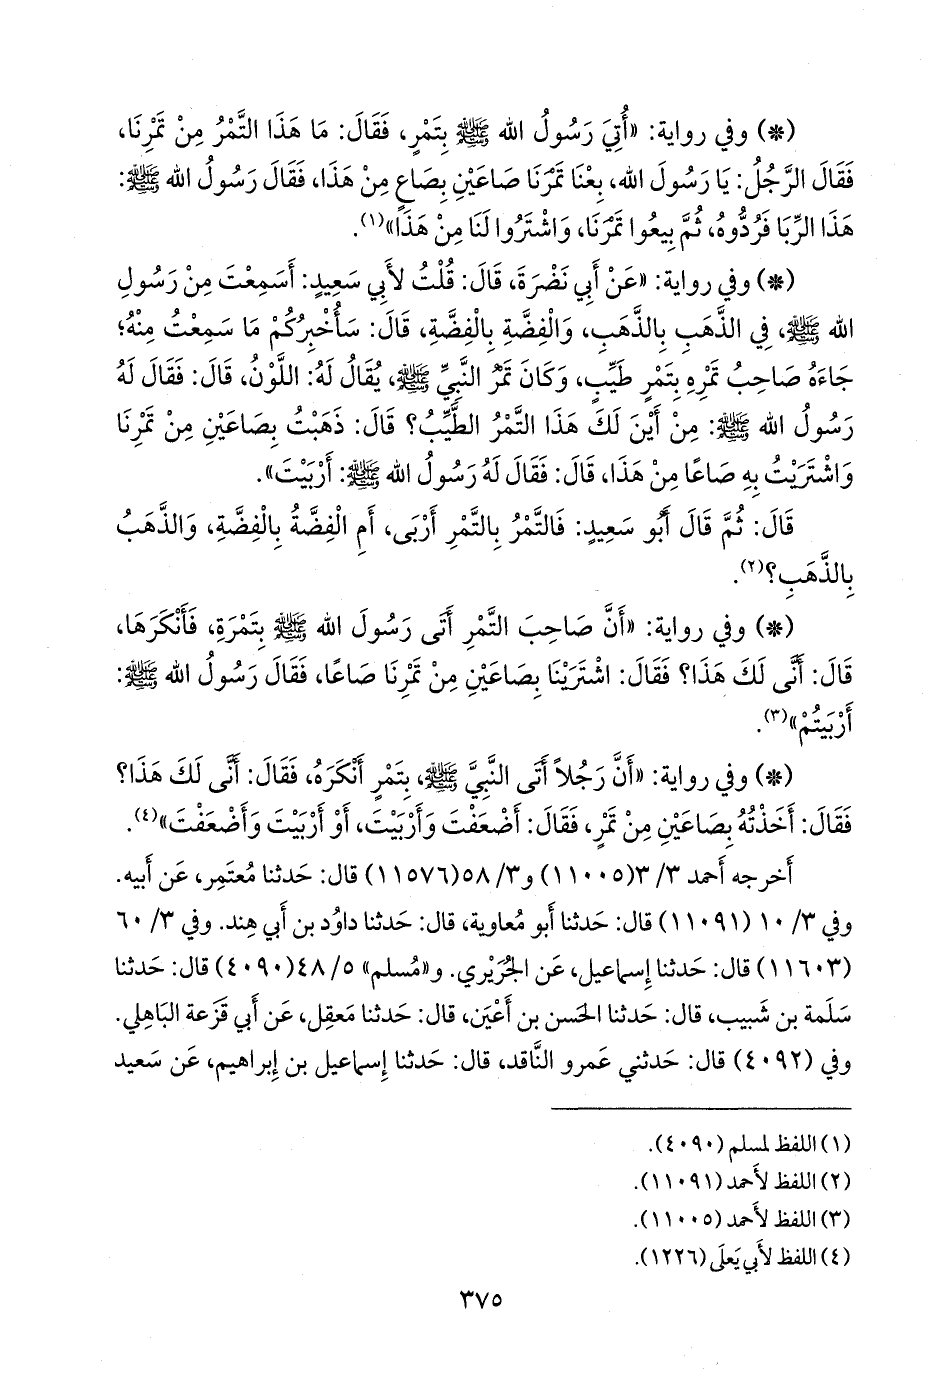 (*) وفي رواية: «أُتِيَ رَسُولُ الله ﷺ بِتَمْرٍ، فَقَالَ: مَا هَذَا التَّمْرُ مِنْ تَمْرِنَا،
فَقَالَ الرَّجُلُ: يَا رَسُولَ الله، بِعْنَا تَمْرَنَا صَاعَيْنِ بِصَاعٍ مِنْ هَذَا، فَقَالَ رَسُولُ الله ﷺ:
هَذَا الرِّبَا فَرُدُّوهُ، ثُمَّ بِيعُوا تَمْرَنَا، وَاشْتَرُوا لَنَا مِنْ هَذَا»(١).
(*) وفي رواية: «عَنْ أَبِي نَضْرَةَ، قَالَ: قُلْتُ لأَبِي سَعِيدٍ: أَسَمِعْتَ مِنْ رَسُولِ
الله ﷺ، فِي الذَّهَبِ بِالذَّهَبِ، وَالْفِضَّةِ بِالْفِضَّةِ، قَالَ: سَأُخْبِرُكُمْ مَا سَمِعْتُ مِنْهُ؛
جَاءَهُ صَاحِبُ تَمْرِهِ بِتَمْرٍ طَيِّبٍ، وَكَانَ تَمْرُ النَّبِيِّ ﷺ، يُقَالُ لَهُ: اللَّوْنُ، قَالَ: فَقَالَ لَهُ
رَسُولُ الله ﷺ: مِنْ أَيْنَ لَكَ هَذَا التَّمْرُ الطَّيِّبُ؟ قَالَ: ذَهَبْتُ بِصَاعَيْنِ مِنْ تَمْرِنَا
وَاشْتَرَيْتُ بِهِ صَاعًا مِنْ هَذَا، قَالَ: فَقَالَ لَهُ رَسُولُ الله ﷺ: أَرْبَيْتَ».
قَالَ: ثُمَّ قَالَ أَبُو سَعِيدٍ: فَالتَّمْرُ بِالتَّمْرِ أَرْبَى، أَمِ الْفِضَّةُ بِالْفِضَّةِ، وَالذَّهَبُ
بِالذَّهَبِ؟(٢).
(*) وفي رواية: «أَنَّ صَاحِبَ التَّمْرِ أَتَى رَسُولَ الله ﷺ بِتَمْرَةٍ، فَأَنْكَرَهَا،
قَالَ: أَنَّى لَكَ هَذَا؟ فَقَالَ: اشْتَرَيْنَا بِصَاعَيْنِ مِنْ تَمْرِنَا صَاعًا، فَقَالَ رَسُولُ الله ﷺ:
أَرْبَيْتُمْ»(٣).
(*) وفي رواية: «أَنَّ رَجُلاً أَتَى النَّبِيَّ ﷺ، بِتَمْرٍ أَنْكَرَهُ، فَقَالَ: أَنَّى لَكَ هَذَا؟
فَقَالَ: أَخَذْتُهُ بِصَاعَيْنِ مِنْ تَمْرٍ، فَقَالَ: أَضْعَفْتَ وَأَرْبَيْتَ، أَوْ أَرْبَيْتَ وَأَضْعَفْتَ»(٤).
أَخرجه أحمد ٣/ ٣(١١٠٠٥) و٣/ ٥٨(١١٥٧٦) قال: حَدثنا مُعتَمِر، عَن أَبيه.
وفي ٣/ ١٠ (١١٠٩١) قال: حَدثنا أَبو مُعاوية، قال: حَدثنا داوُد بن أَبي هِند. وفي ٣/ ٦٠
(١١٦٠٣) قال: حَدثنا إِسماعيل، عَن الجُرَيْري. و«مُسلم» ٥/ ٤٨(٤٠٩٠) قال: حَدثنا
سَلَمة بن شَبيب، قال: حَدثنا الحَسن بن أَعْيَن، قال: حَدثنا مَعقِل، عَن أَبي قَزَعة البَاهِلي.
وفي (٤٠٩٢) قال: حَدثني عَمرو النَّاقد، قال: حَدثنا إِسماعيل بن إِبراهيم، عَن سَعيد
(١) اللفظ لمسلم (٤٠٩٠).
(٢) اللفظ لأَحمد (١١٠٩١).
(٣) اللفظ لأَحمد (١١٠٠٥).
(٤) اللفظ لأَبي يَعلَى (١٢٢٦).
٣٧٥